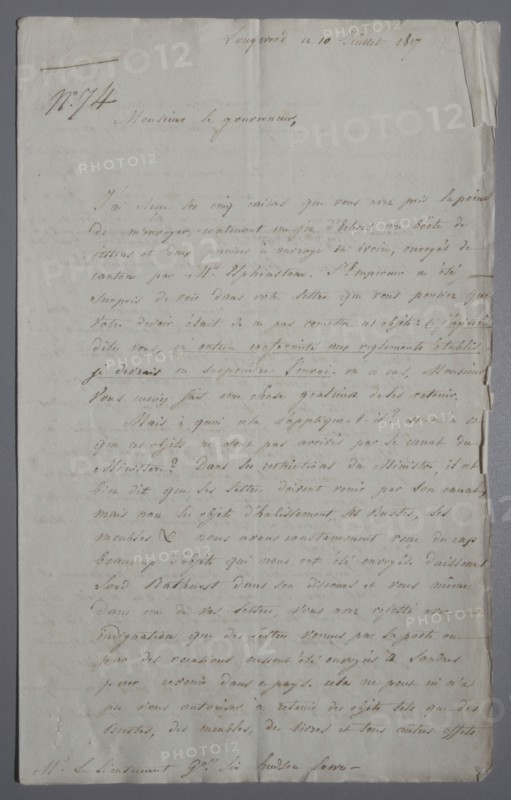 Longwood ce 10 Juillet 1817
N.° 74
Monsieur le gouverneur,
J'ai reçu les cinq caisses que vous avez pris la peine
de m'envoyer, contenant un jeu d'échecs, une boëte de
jettons et deux paniers à ouvrage en ivoire, envoyés de
Canton par Mr. Elphinstone. L'Empereur a été
surpris de voir dans votre lettre que vous pensiez que
votre devoir était de ne pas remettre ces objets si j'agissais
dites vous, en entière conformité aux réglements établis,
je devrais en suspendre l'envoi en ce cas, Monsieur
vous auriez fait une chose gracieuse de les retenir.
Mais à quoi cela s'applique-t-il? est-ce à ce
que ces objets ne sont pas arrivés par le canal du
Ministère? Dans les restrictions du Ministre, il est
bien dit que les lettres doivent venir par son canal,
mais non les objets d'habillement, les bustes, les
meubles &. nous avons constamment reçu du cap
beaucoup d'objets qui nous ont été envoyés. d'ailleurs
Lord Bathurst dans son discours et vous même
dans une de vos lettres, vous avez rejetté avec
indignation que des lettres venues par la poste ou
par des occasions eussent été envoyées à Londres
pour revenir dans ce pays. cela ne peut ni n'a
pu vous autoriser à retenir des objets tels que des
bustes, des meubles, de livres et tous autres effets
Mr. le Lieutenant G.al Sir Hudson Lowe
PHOTO12